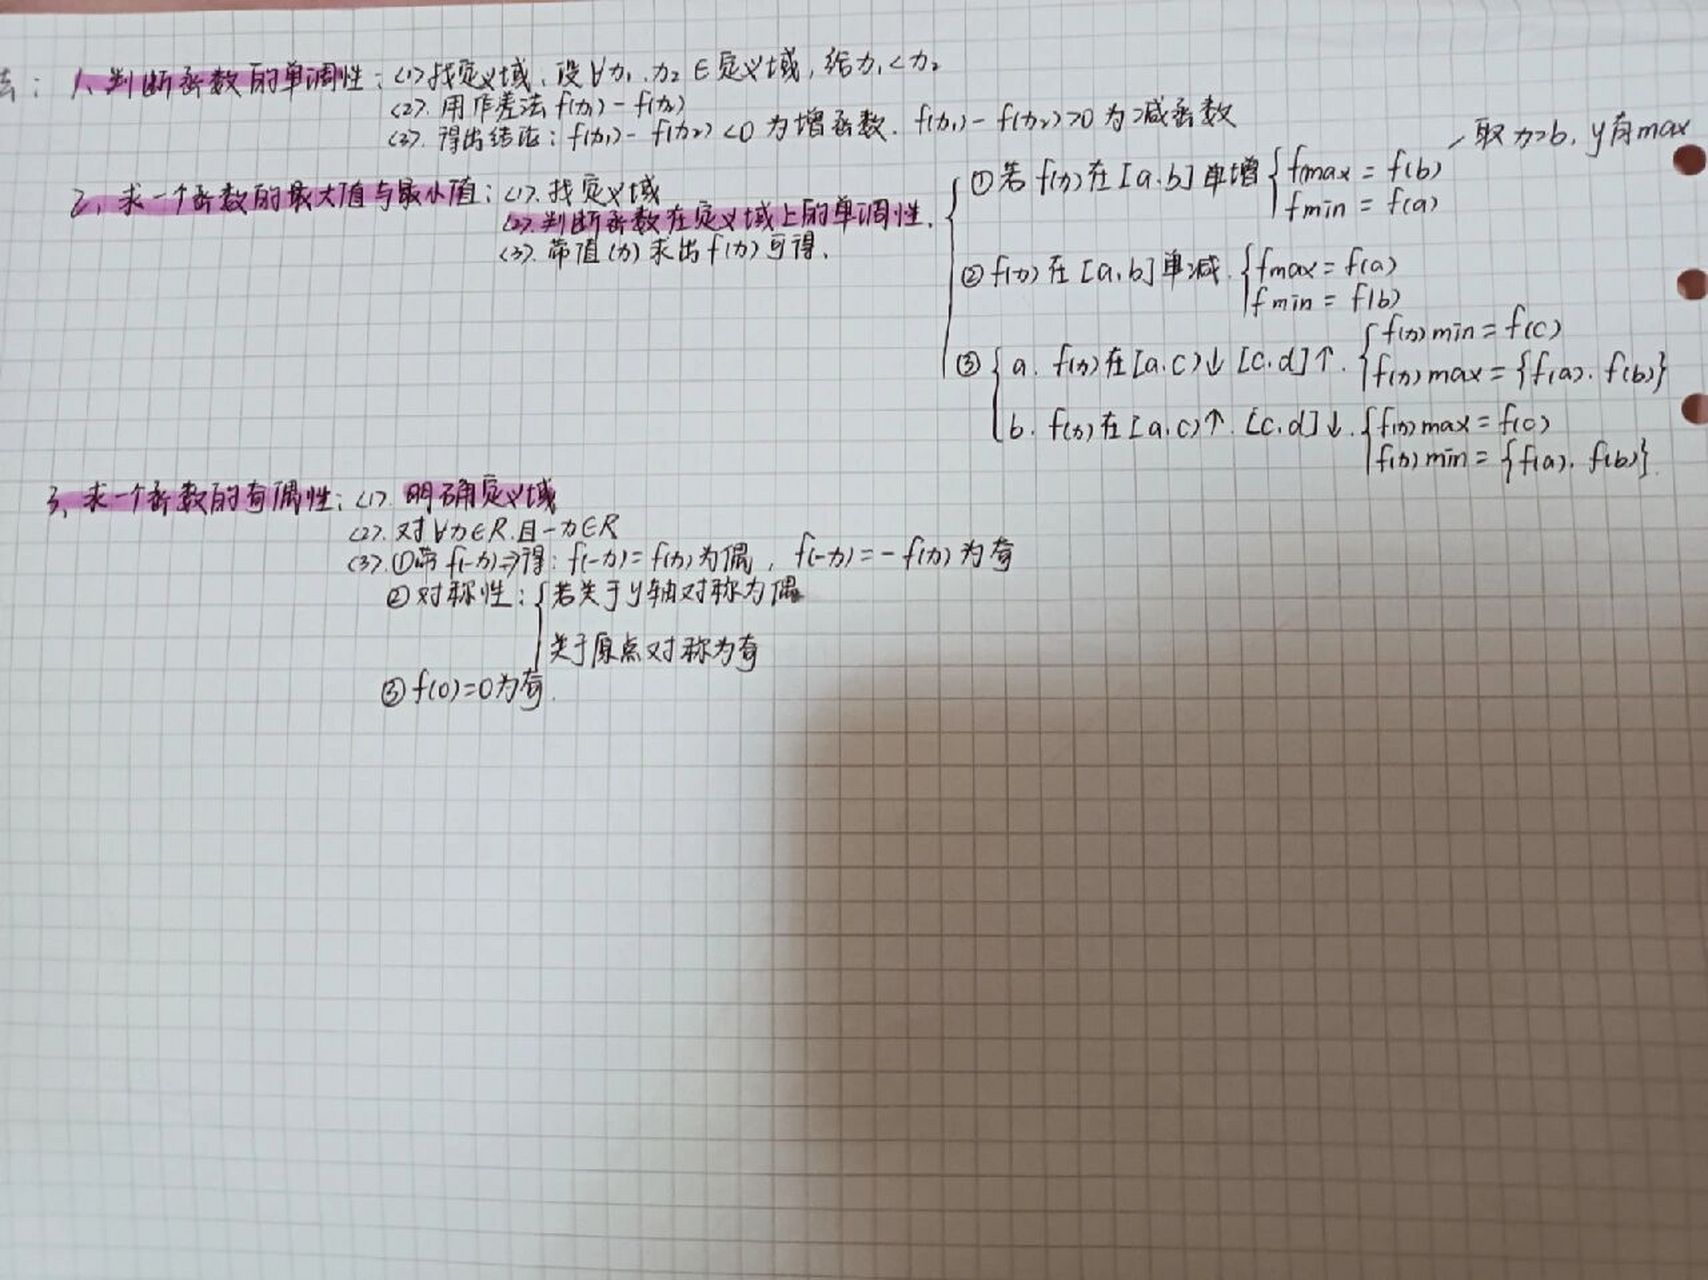 法：1、判断函数的单调性：<1>找定义域、设∀x₁、x₂∈定义域，给x₁<x₂
<2>.用作差法f(x₁)-f(x₂)
<3>.得出结论：f(x₁)-f(x₂)<0为增函数.f(x₁)-f(x₂)>0为减函数
2、求一个函数的最大值与最小值：<1>.找定义域
<2>.判断函数在定义域上的单调性.
<3>.带值(x)求出f(x)可得.
取x=b,y有max
①若f(x)在[a.b]单增{fmax=f(b)
fmin=f(a)
②f(x)在[a.b]单减.{fmax=f(a)
fmin=f(b)
③{a.f(x)在[a.c)↓[c.d]↑.{f(x)min=f(c)
f(x)max={f(a).f(b)}
b.f(x)在[a.c)↑.[c.d]↓.{f(x)max=f(c)
f(x)min={f(a).f(b)}.
3、求一个函数的奇偶性：<1>.明确定义域
<2>.对∀x∈R.且-x∈R
<3>.①带f(-x)⇒得：f(-x)=f(x)为偶，f(-x)=-f(x)为奇
②对称性：{若关于y轴对称为偶
关于原点对称为奇
③f(0)=0为奇.